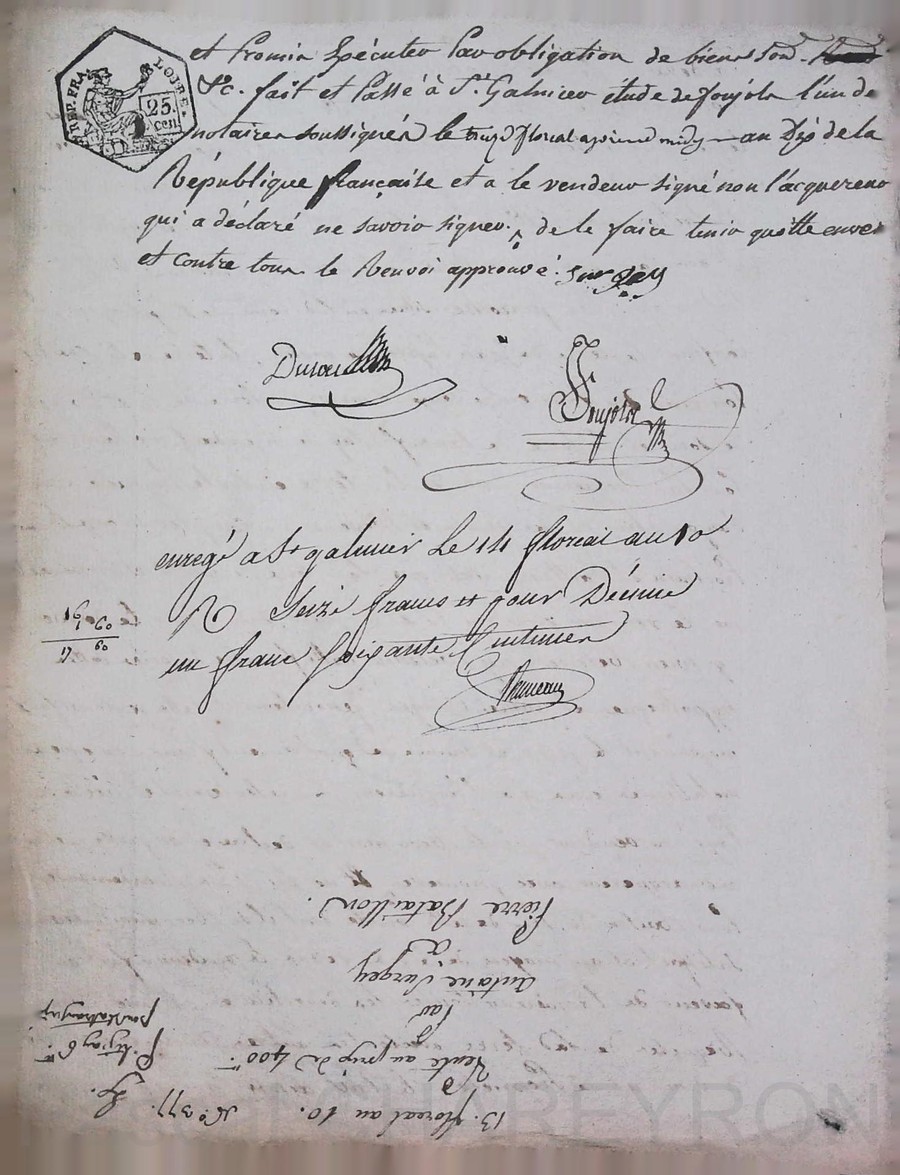 REP. FRA. LOIRE.
25. cen
et Promis Exécuter Par obligation de biens Soud.
&c. fait et Passé à St. Galmier étude de Joujoln l'un de
notaires soussignés le treize floreal après midy — au Dix de la
République française et a le vendeur signé non l'acquereur
qui a déclaré ne savoir signer. de le faire tenir quitte enver
et contre tous le Renvoi approuvé. Surgey
enregé a St galmier Le 14 floreal an 10
R Seize francs et pour Décime
un franc Soixante Centimes
16
1 60
17 60
13. floreal an 10. No. 377.
Vente au prix de 400
Par
Antoine Surgey
a
Pierre Bataillon.